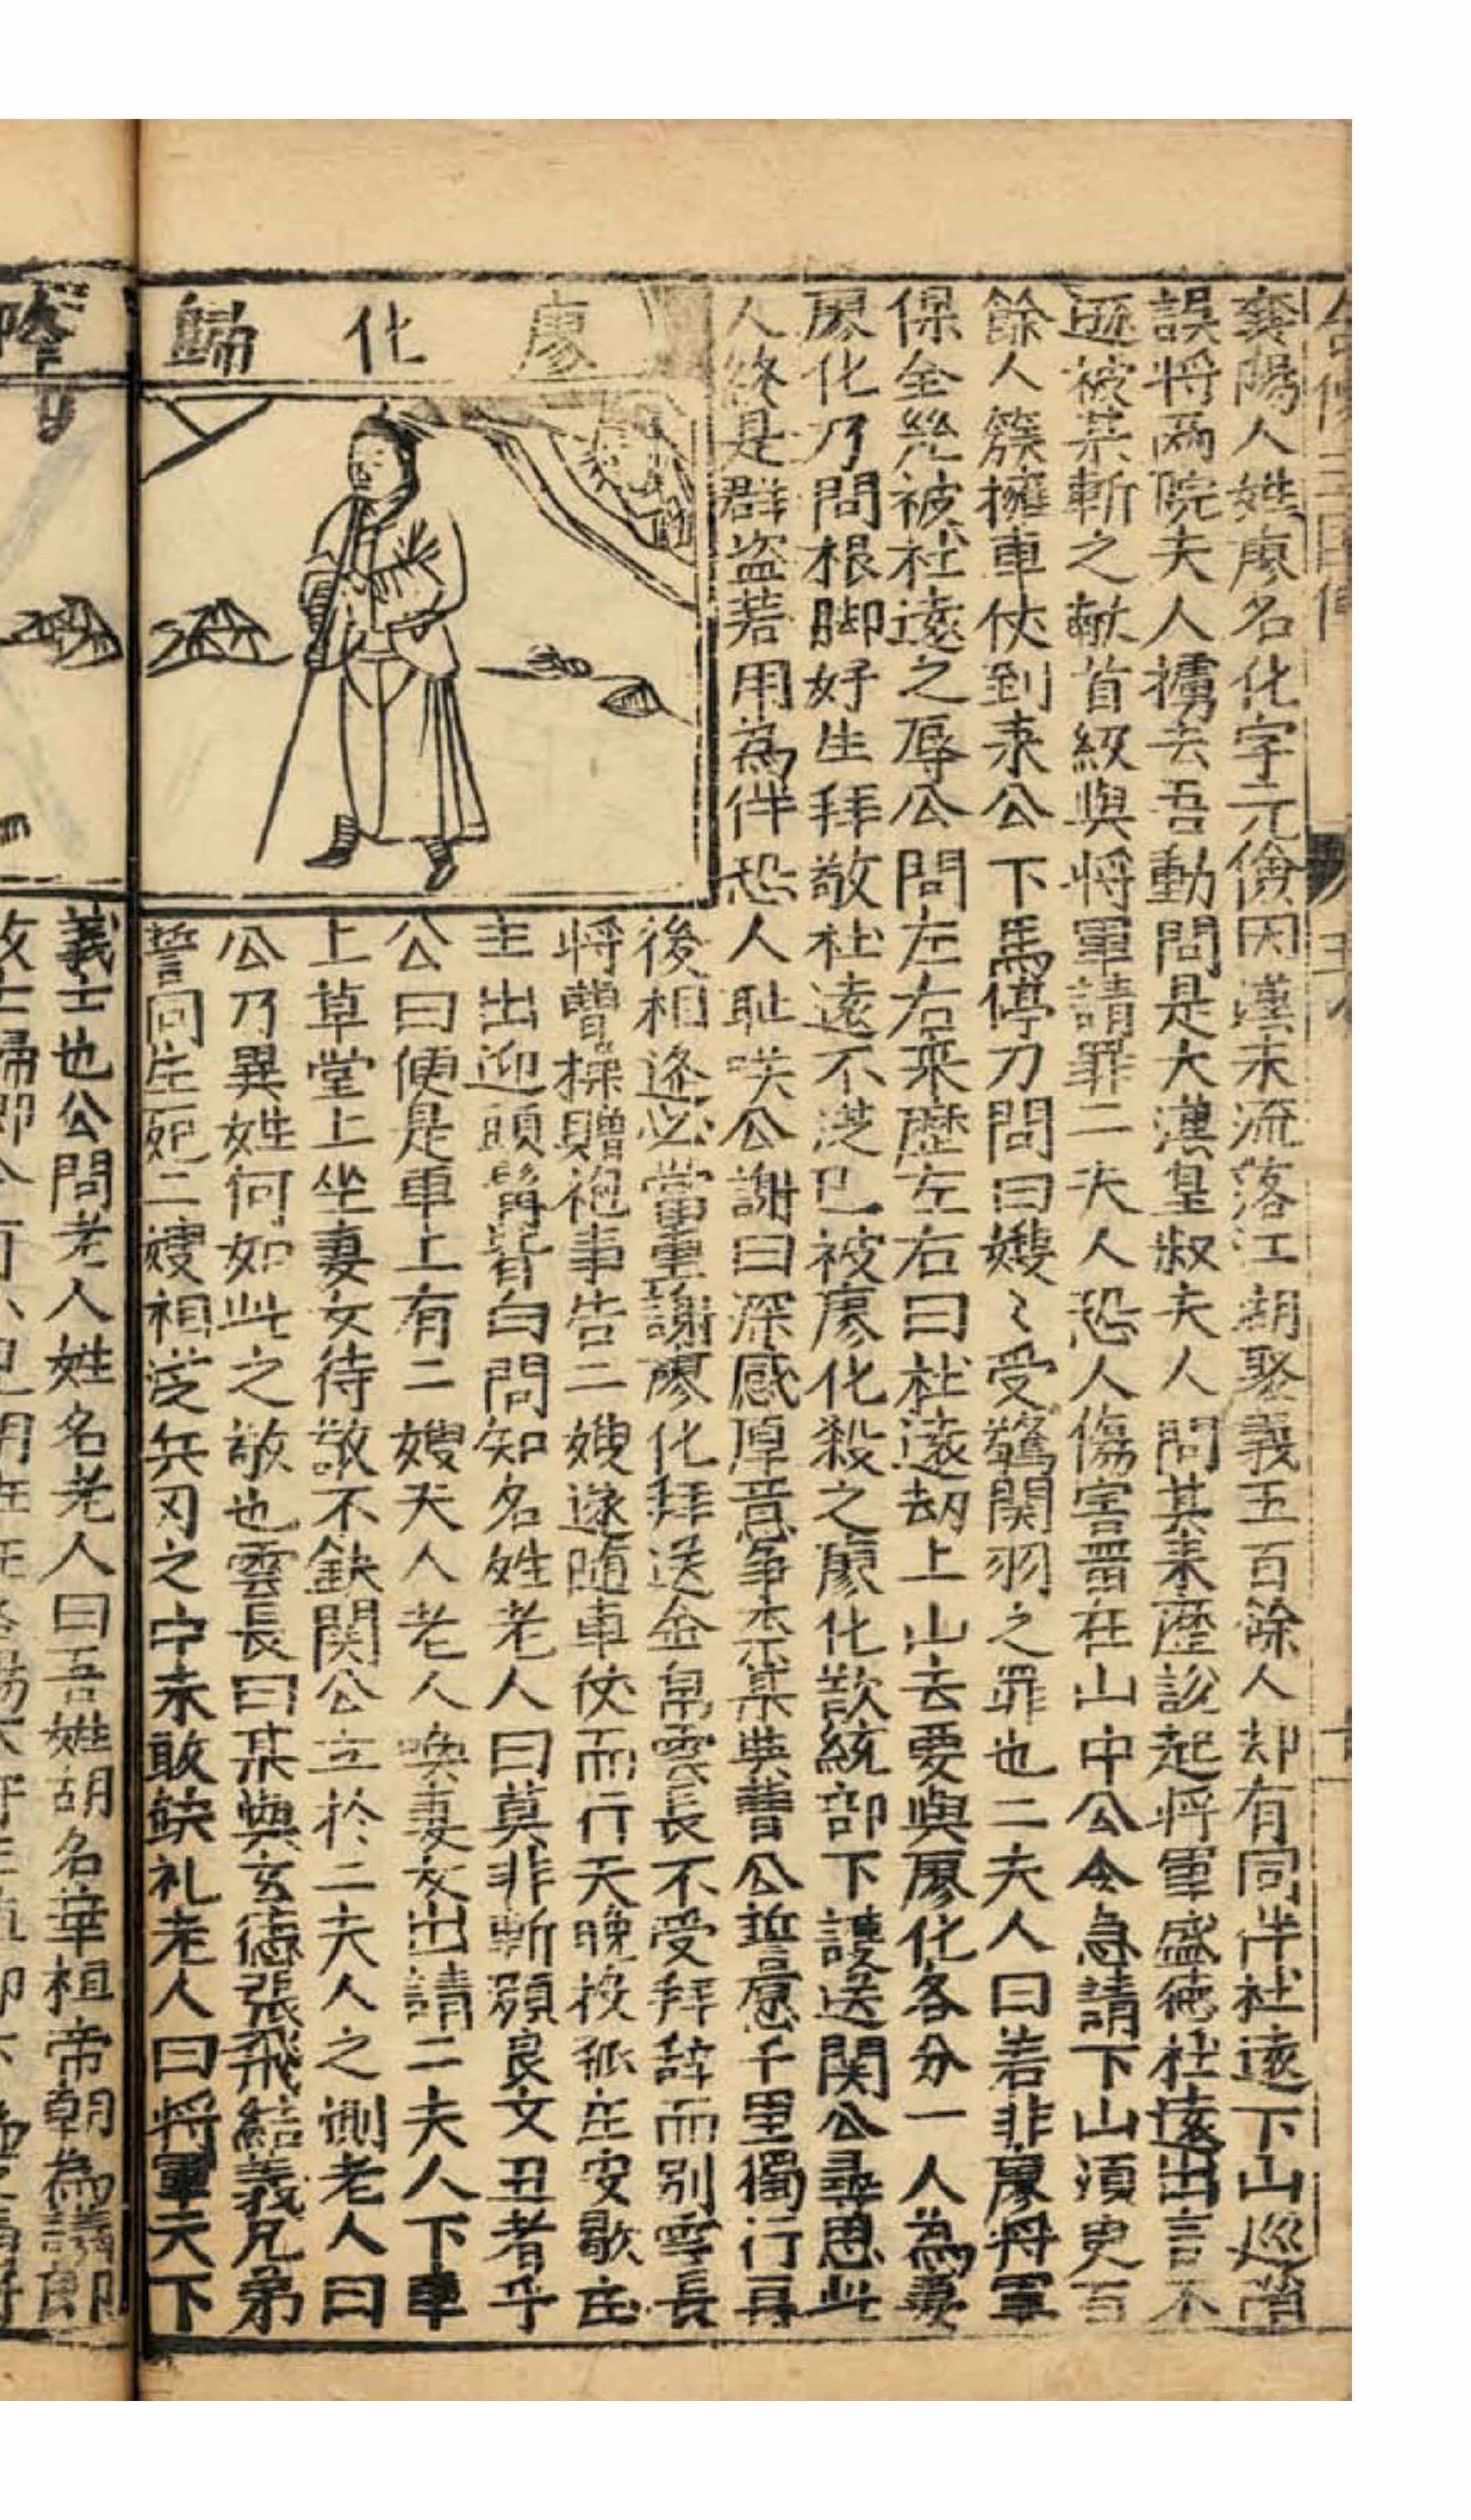 襄陽人姓廖名化字元儉因漢末流落江湖聚義五百餘人却有同伴杜遠下山巡哨
誤將兩院夫人擄去吾動問是大漢皇叔夫人問其來歷說起將軍盛德杜遠出言不
遜被某斬之献首級與將軍請罪二夫人恐人傷害留在山中公令急請下山須臾百
餘人簇擁車伕到來公下馬停刀問曰嫂〻受驚関羽之罪也二夫人曰若非廖將軍
保全幾被杜遠之辱公問左右來歷左右曰杜遠刼上山去要與廖化各分一人為妻
廖化乃問根脚好生拜敬杜遠不從已被廖化殺之廖化欲統部下護送関公尋思此
人終是群盗若用為伴恐人耻咲公謝曰深感厚意争奈某與曹公誓愿千里獨行再
後相逢必當重謝廖化拜送金帛雲長不受拜辞而別雲長
將曹操贈袍事告二嫂遂随車伕而行天晚投孤庄安歇庄
主出迎頭髯皆白問知名姓老人曰莫非斬顔良文丑者乎
公曰便是車上有二嫂夫人老人喚妻女出請二夫人下車
上草堂上坐妻女待敬不缺関公立於二夫人之側老人曰
公乃異姓何如此之敬也雲長曰某與玄德張飛結義兄弟
誓同生死二嫂相從兵刃之中未敢缺礼老人曰將軍天下
廖化歸
義士也公問老人姓名老人曰吾姓胡名華桓帝朝為議郎